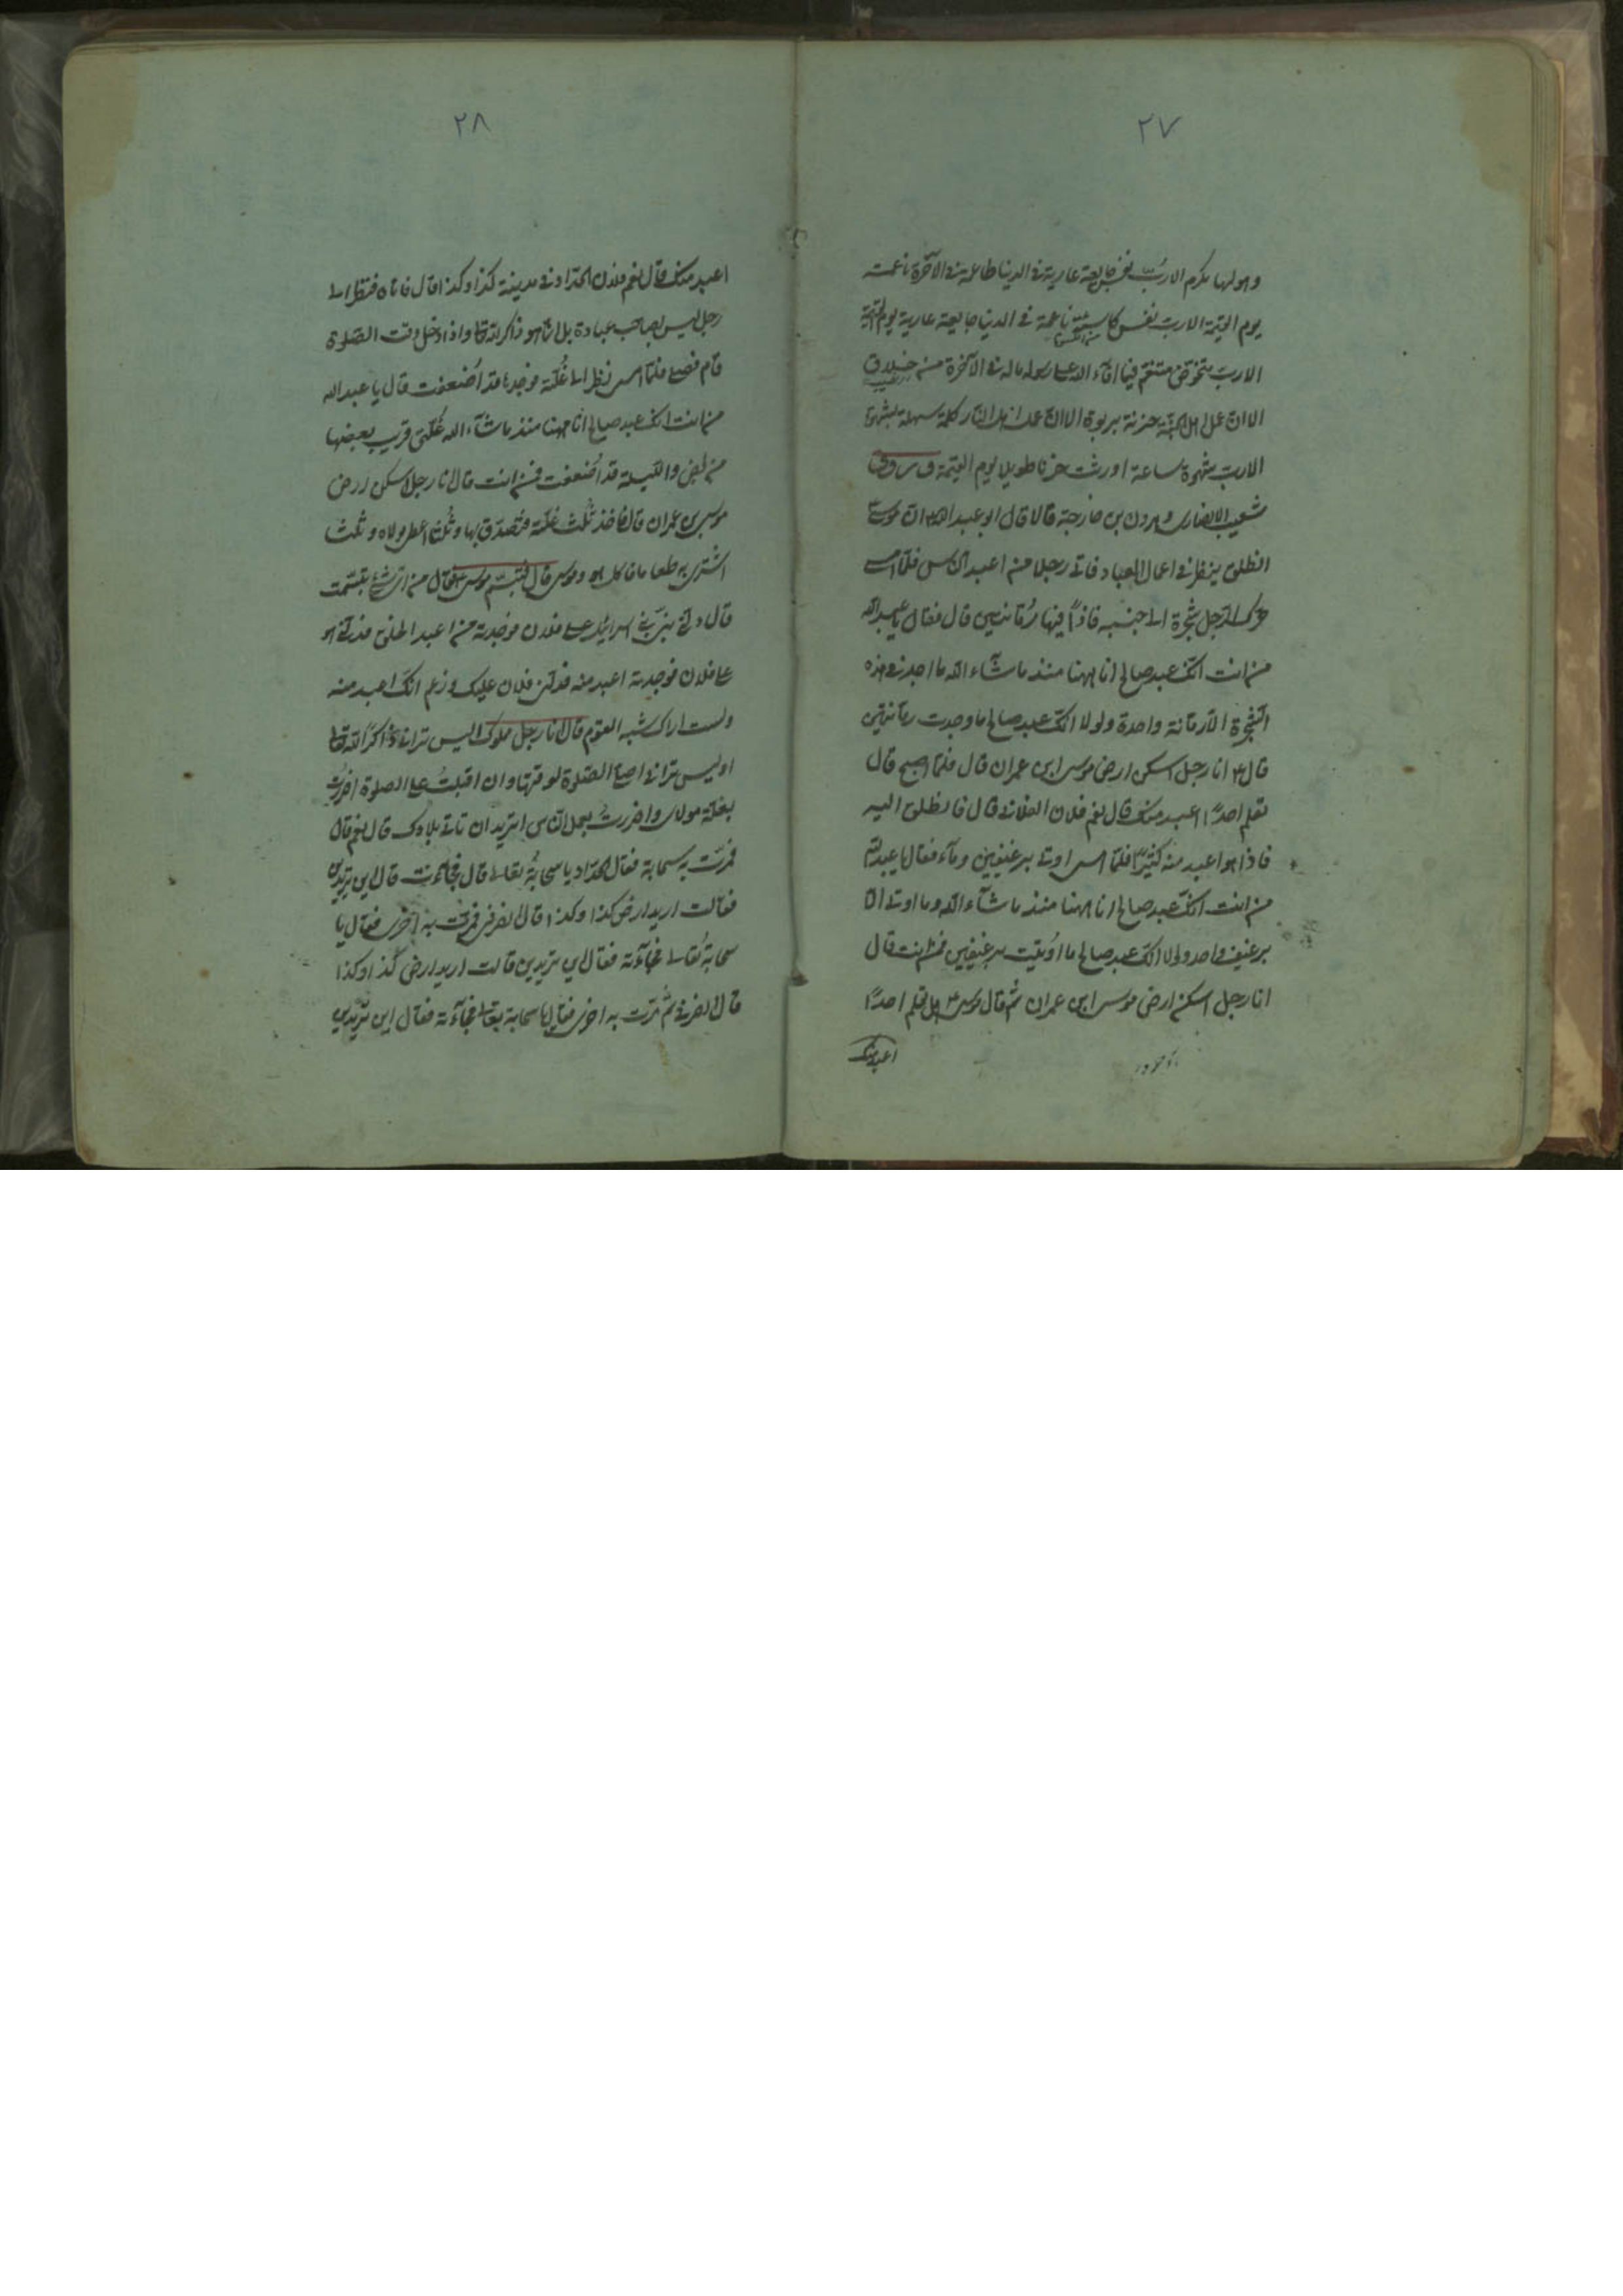 ٢٧
وهو لها مكرم الا رُبّ نفس جايعة عارية في الدنيا طاعمة في الآخرة ناعمة
يوم القيمة الا ربّ نفس كاسية ناعمة في الدنيا جايعة عارية يوم القيمة
الا ربّ متخوّض متنعّم فيما افآء الله على رسوله ما له في الآخرة من خلاق
الا ان عمل اهل الجنّة حزنة بربوة الا ان عمل اهل النار سهلة بشهوة
الا ربّ شهوة ساعة اورثت حزنا طويلا يوم القيمة
شعيب الانصارى وهرون بن خارجة قالا قال ابو عبد الله ان موسى
انطلق ينظر في اعمال العباد فاتى رجلا من اعبد الناس فلمّا امسى
حرّك الرّجل شجرة الى جنبه فاذاً فيها رُمّانتين قال فقال يا عبد الله
من انت انّك عبد صالح انا ههنا منذ ما شآء الله ما اجد في هذه
الشّجرة الّا رمّانة واحدة ولولا انّك عبد صالح ما وجدت رمّانتين
قال انا رجل اسكن ارض موسى ابن عمران قال فلمّا اصبح قال
تعلم احداً اعبد منك قال نعم فلان الفلاني قال فانطلق اليه
فاذا هو اعبد منه كثيراً فلمّا امسى اوتى برغيفين ومآء فقال يا عبد الله
من انت انّك عبد صالح انا ههنا منذ ما شآء الله وما اوتى الّا
برغيف واحد ولولا انّك عبد صالح ما اُوتيت برغيفين فمن انت قال
انا رجل اسكن ارض موسى ابن عمران ثم قال موسى هل تعلم احداً
اعبد منك
٢٨
اعبد منك قال نعم فلان الحدّاد في مدينة كذا وكذا قال فاتاه فنظر الى
رجل ليس بصاحب عبادة بل انّما هو ذاكر لله تعا واذا دخل وقت الصّلوة
قام فصلى فلمّا امسى نظر الى غُلّته فوجدها قد اُضعفت قال يا عبد الله
من انت انّك عبد صالح انا ههنا منذ ما شآء الله غُلّتى قريب بعضها
من بعض واللّيلة قد اُضعفت فمن انت قال انا رجل اسكن ارض
موسى بن عمران قال فاخذ ثُلث غُلّته فتصدّق بها وثُلثا اعطى مولاه وثلثا
اشترى به طعاما فاكل هو وموسى قال فتبسّم موسى فقال من اىّ شئ تبسّمت
قال دلّني نبىّ بني اسرائيل على فلان فوجدته من اعبد الخلق فدلّني هو
على فلان فوجدته اعبد منه فدلّني فلان عليك وزعم انّك اعبد منه
ولست اراك شبه القوم قال انا رجل مملوك اليس تراني ذاكراً لله تعا
اوليس تراني اصلّى الصّلوة لوقتها وان اقبلتُ على الصلوة اضررتُ
بغلّة مولاى واضررتُ بعمل النّاس اتريد ان تاتى بلادك قال نعم قال
فمرّت به سحابة فقال الحدّاد يا سحابةُ تعالى قال فجآءت قال اين تريدين
فقالت اريد ارض كذا وكذا قال انصرفي فمرّت به اخرى فقال يا
سحابة تُعالى فجآءته فقال اين تريدين قالت اريد ارض كذا وكذا
قال انصرفي ثمّ مرّت به اخرى فقال يا سحابة تعالى فجآءته فقال اين تريدين